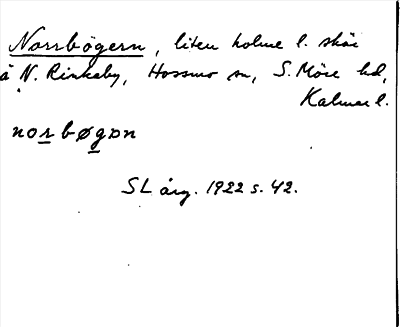 Norrbögern, liten holme l. skär
å N. Rinkaby, Hossmo sn, S. Möre hd,
Kalmar l.
norbøgøn
SL årg. 1922 s. 42.